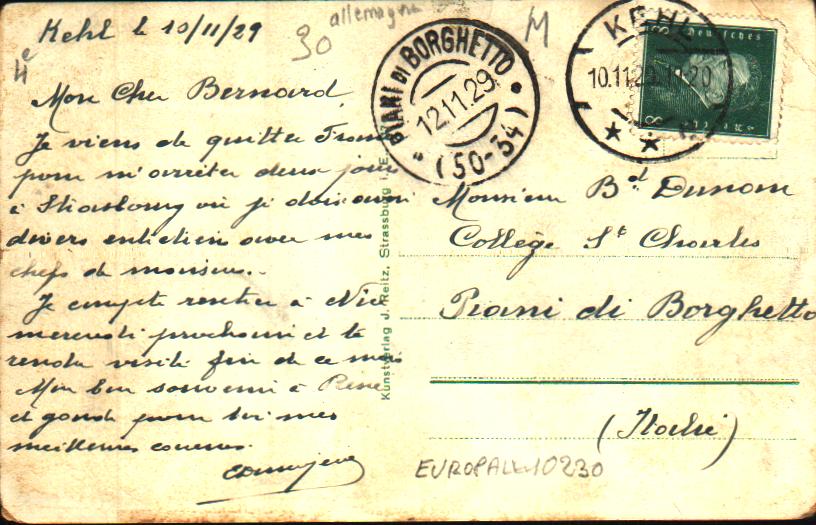 Kehl le 10/11/29
allemagne
30
M
4e
PIANI DI BORGHETTO
12.11.29
(50-34)
KEHL
10.11.29.19-20
Deutsches
8
8
Mon Cher Bernard,
Je viens de quitter
pour m'arrêter deux jours
à Strasbourg où je dois avoir
divers entretiens avec mes
chefs de
Je compte rentrer à Nice
mercredi prochain et te
rendre visite fin de ce mois
Mon bon souvenir à René
et garde pour toi mes
meilleures
Monsieur Bd Dunan
Collège St Charles
Piani di Borghetto
(Italie)
Kunstverlag J. Reitz, Strassburg
EUROPALL10230